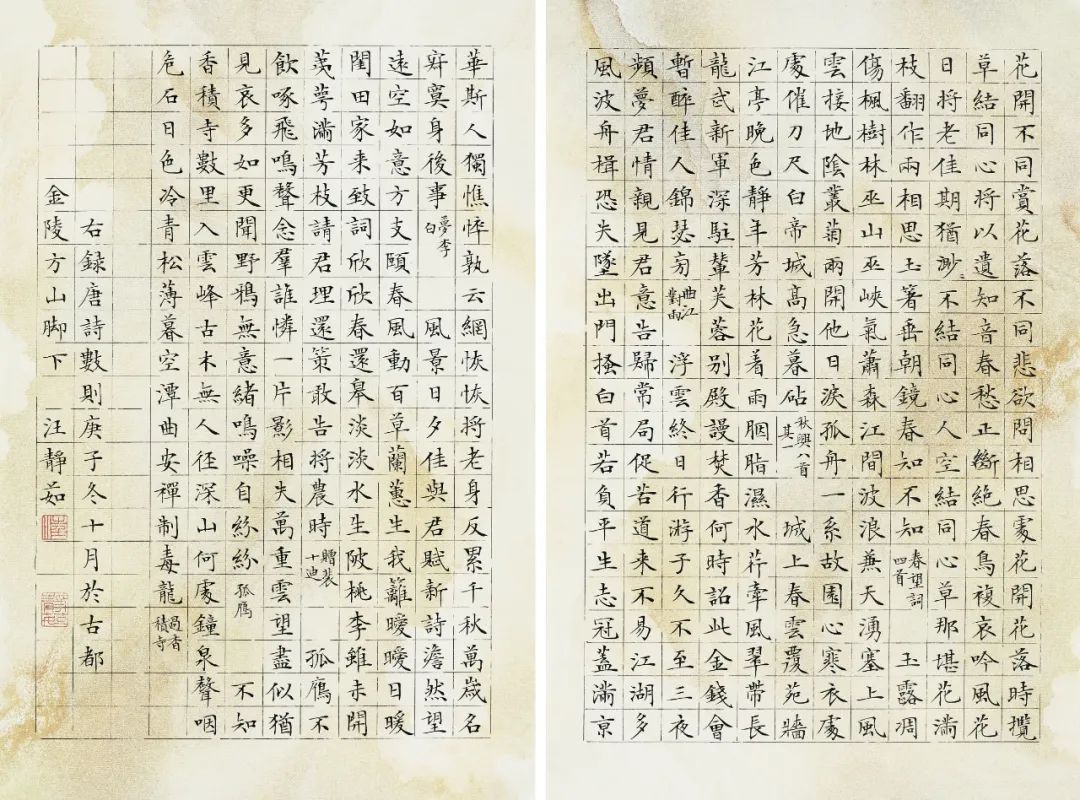 花開不同賞花落不同悲欲問相思處花開花落時攬
草結同心將以遺知音春愁正斷絕春鳥複哀吟風花
日將老佳期猶渺〻不結同心人空結同心草那堪花滿
枝翻作兩相思玉箸垂朝鏡春知不知 春望詞四首 玉露凋
傷楓樹林巫山巫峽氣蕭森江間波浪兼天湧塞上風
雲接地陰叢菊兩開他日淚孤舟一系故園心寒衣處
處催刀尺白帝城高急暮砧 秋興八首其一 城上春雲覆苑牆
江亭晚色靜年芳林花着雨胭脂濕水荇牽風翠帶長
龍武新軍深駐輦芙蓉別殿謾焚香何時詔此金錢會
暫醉佳人錦瑟旁 曲江對雨 浮雲終日行游子久不至三夜
頻夢君情親見君意告歸常局促苦道來不易江湖多
風波舟楫恐失墜出門搔白首若負平生志冠蓋滿京
華斯人獨憔悴孰云網恢恢將老身反累千秋萬歲名
寂寞身後事 夢李白 風景日夕佳與君賦新詩澹然望
遠空如意方支頤春風動百草蘭蕙生我籬曖曖日暖
閨田家来致詞欣欣春還皋淡淡水生陂桃李雖未開
荑萼滿芳枝請君理還策敢告將農時 贈裴十迪 孤鴈不
飲啄飛鳴聲念羣誰憐一片影相失萬重雲望盡似猶
見哀多如更聞野鴉無意緒鳴噪自紛紛 孤鴈 不知
香積寺數里入雲峰古木無人徑深山何處鐘泉聲咽
危石日色冷青松薄暮空潭曲安禪制毒龍 過香積寺
右録唐詩數則庚子冬十月於古都
金陵方山腳下 汪靜茹